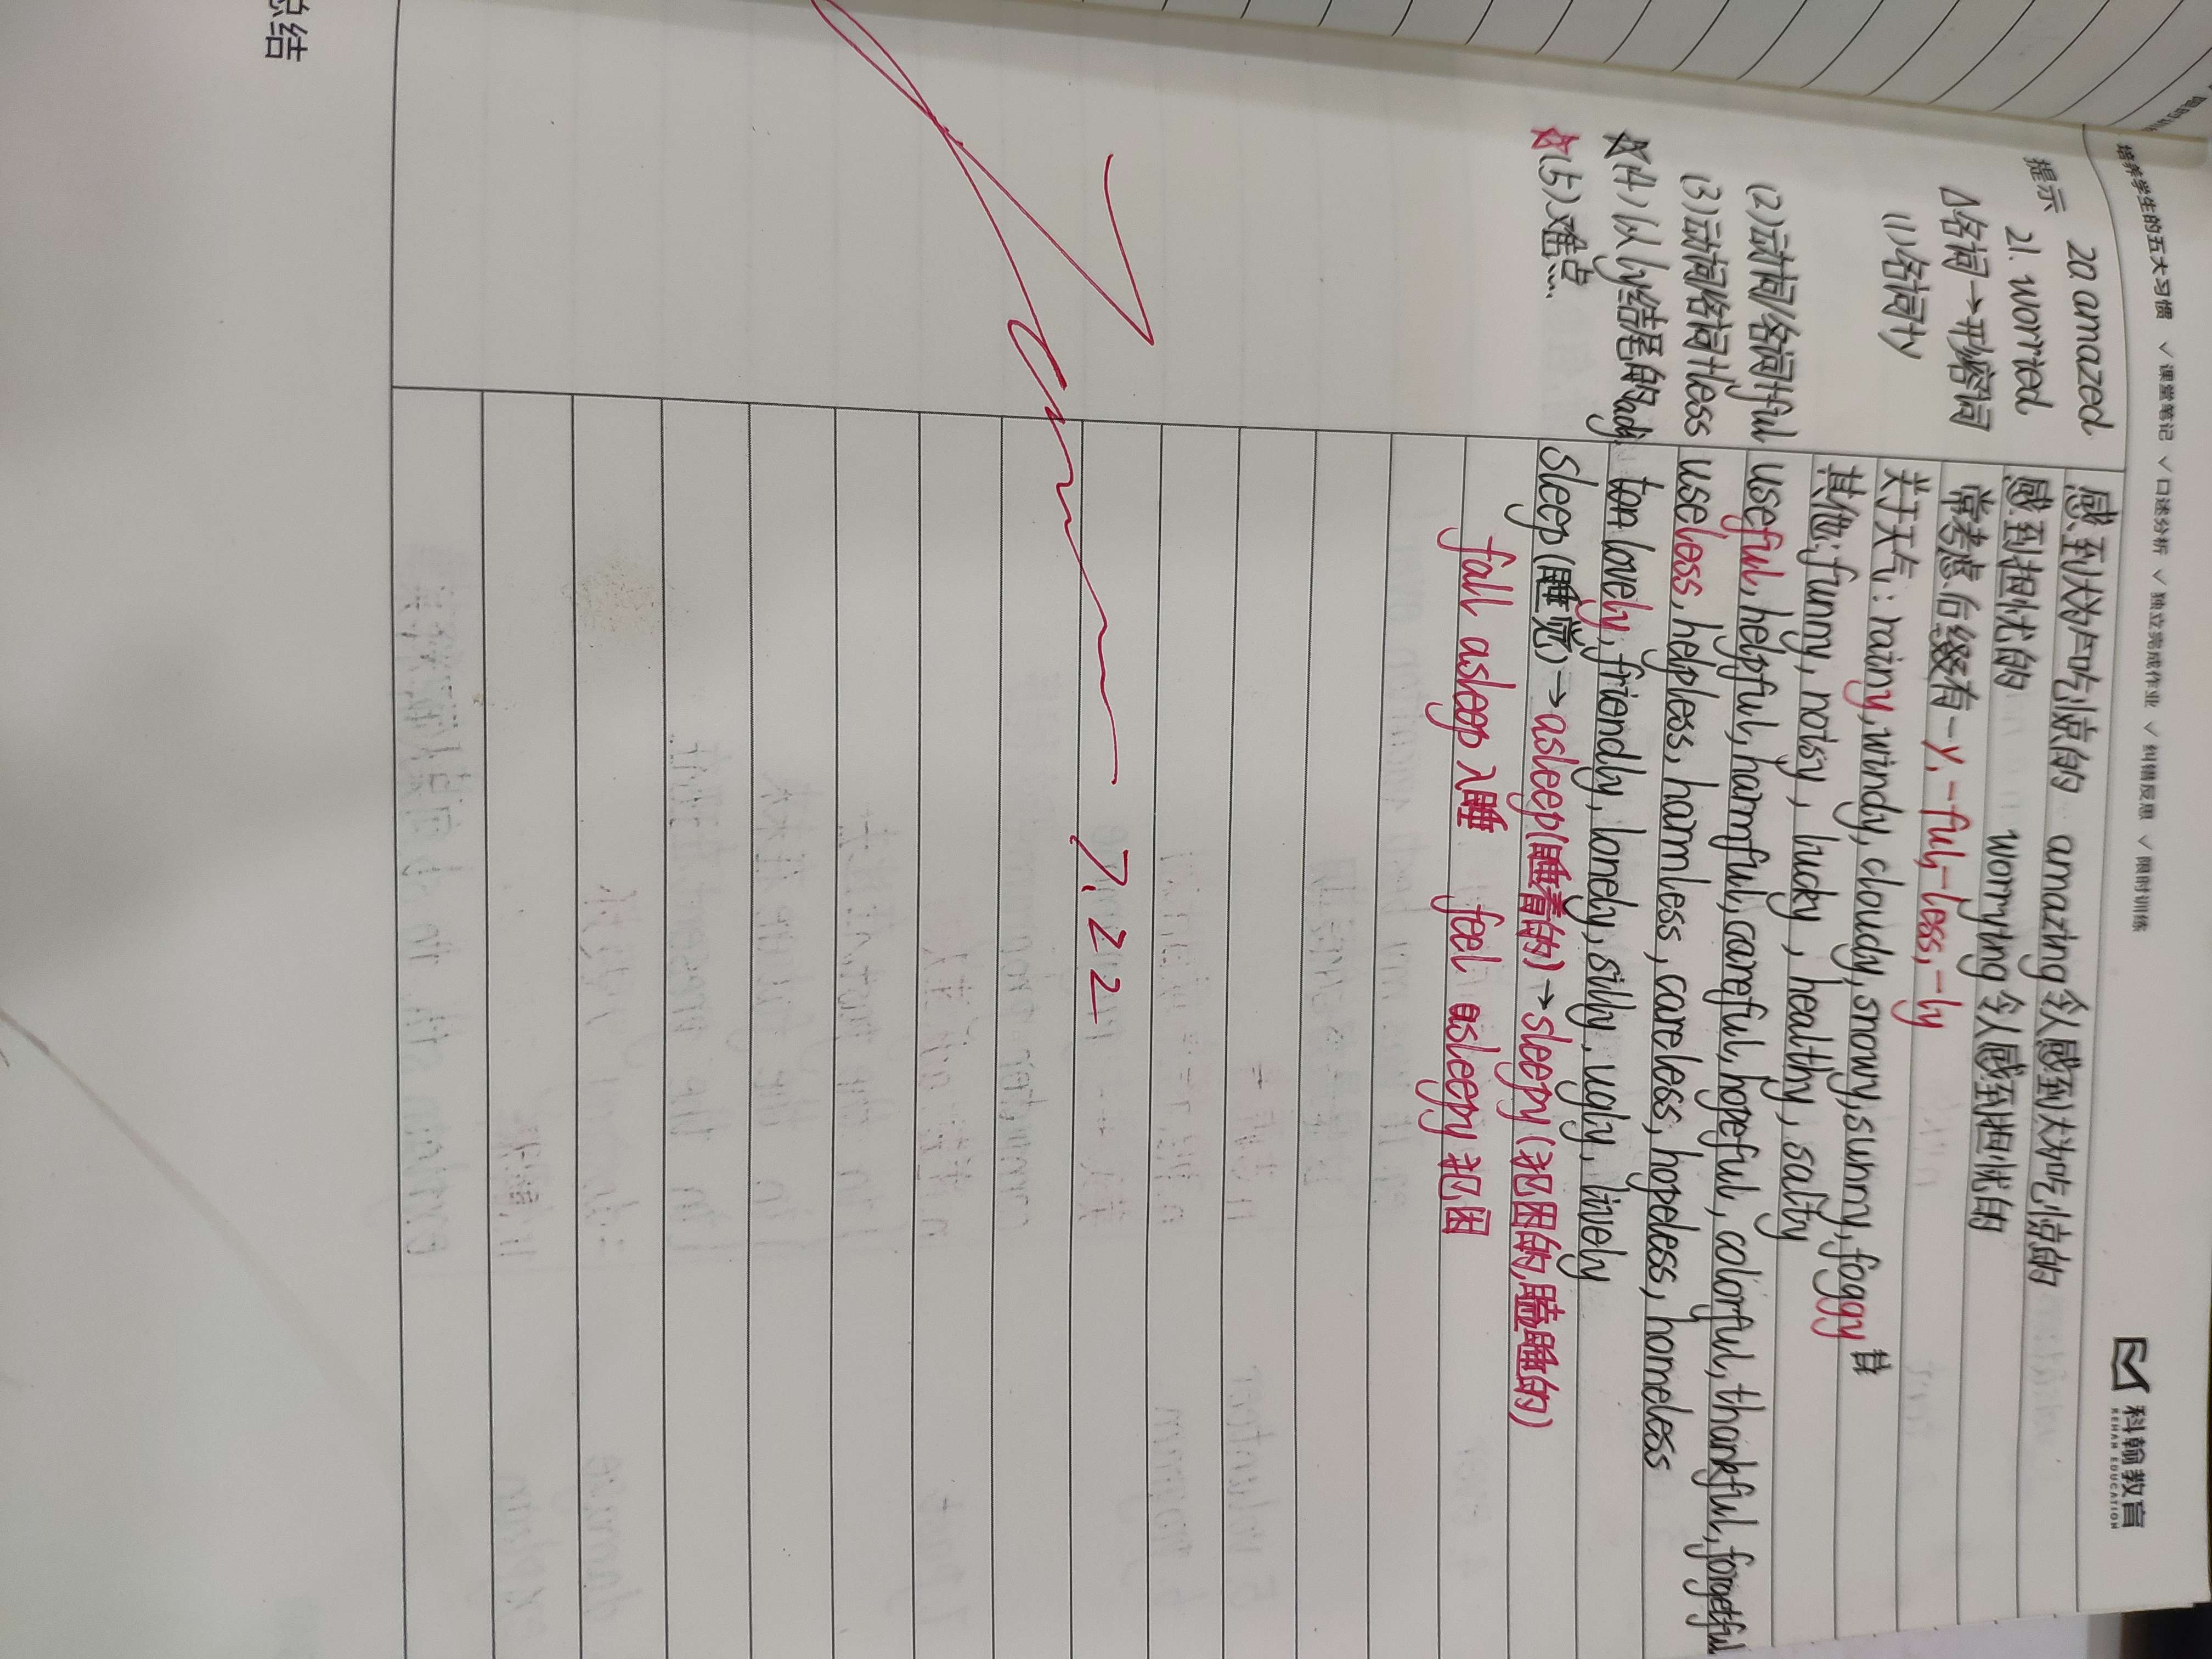 培养学生的五大习惯 ✓课堂笔记 ✓口述分析 ✓独立完成作业 ✓纠错反思 ✓限时训练
科翰教育
KEHAN EDUCATION
提示
20 amazed 感到大为吃惊的 amazing 令人感到大为吃惊的
21. worried 感到担忧的 worrying 令人感到担忧的
△名词→形容词 常考虑后缀有-y,-ful,-less,-ly
(1)名词+y 关于天气:rainy,windy,cloudy,snowy,sunny,foggy
其他:funny,noisy,lucky,healthy,salty
(2)动词/名词+ful useful,helpful,harmful,careful,hopeful,colorful,thankful,forgetful
(3)动词/名词+less useless,helpless,harmless,careless,hopeless,homeless
☆(4)以ly结尾的adj lovely,friendly,lonely,silly,ugly,lively
☆(5)难点…. sleep(睡觉)→asleep(睡着的)→sleepy(犯困的,瞌睡的)
fall asleep 入睡 feel asleepy 犯困
7.22
总结